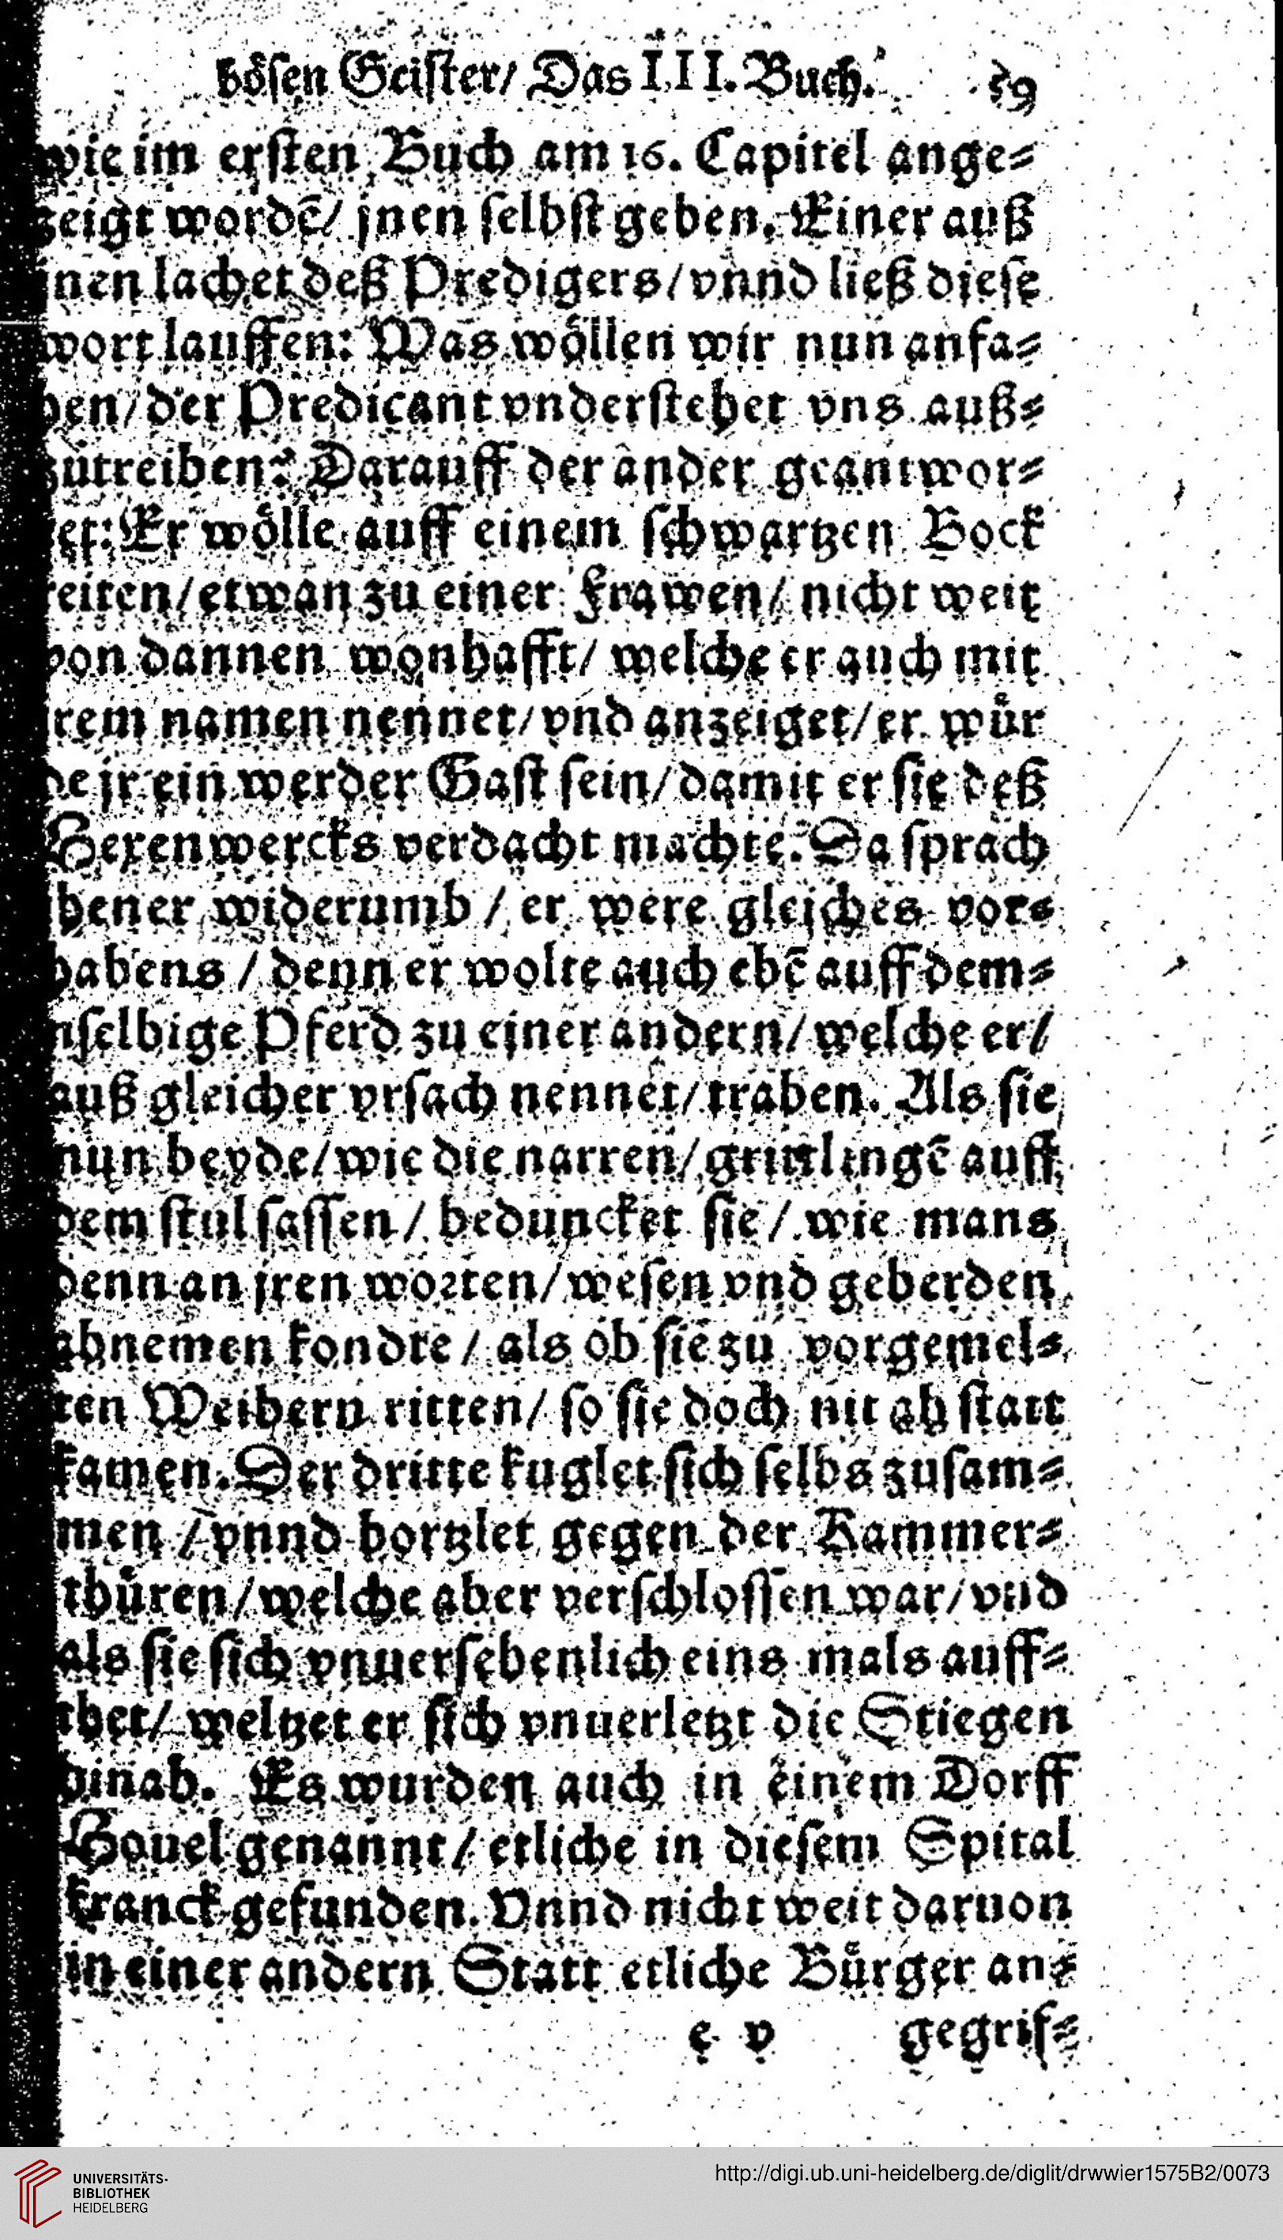 bösen Geister/ Das III. Buch. 59
wie im ersten Buch am 16. Capitel ange⸗
zeigt wordē/ jnen selbst geben. Einer auß
jnen lachet deß Predigers/ vnnd ließ diese
wort lauffen: Was wöllen wir nun anfa⸗
hen/ der Predicant vnderstehet vns auß⸗
zutreiben? Darauff der ander geantwor⸗
tet: Er wölle auff einem schwartzen Bock
reiten/ etwan zu einer Frawen/ nicht weit
von dannen wonhafft/ welche er auch mit
jrem namen nennet/ vnd anzeiget/ er wůr
de jr ein werder Gast sein/ damit er sie deß
Hexenwercks verdacht machte. Da sprach
jhener widerumb / er were gleiches vor⸗
habens / denn er wolte auch ebē auff dem⸗
selbige Pferd zu einer andern/ welche er/
auß gleicher vrsach nennet/ traben. Als sie
nun beyde/ wie die narren/ grittlingē auff
dem stul sassen/ beduncket sie/ wie mans
denn an jren worten/ wesen vnd geberden
abnemen kondte / als ob sie zu vorgemel⸗
ten Weibern ritten/ so sie doch nit ab statt
kamen. Der dritte kuglet sich selbs zusam⸗
men / vnnd bortzlet gegen der Kammer⸗
thůren/ welche aber verschlossen war/ vnd
als sie sich vnuersehenlich eins mals auff⸗
thet/ weltzet er sich vnuerletzt die Stiegen
hinab. Es wurden auch in einem Dorff
Houel genannt/ etliche in diesem Spital
kranck gefunden. Vnnd nicht weit daruon
in einer andern Statt etliche Bůrger an⸗
e v gegrif⸗
UNIVERSITÄTS-
BIBLIOTHEK
HEIDELBERG
http://digi.ub.uni-heidelberg.de/diglit/drwwier1575B2/0073